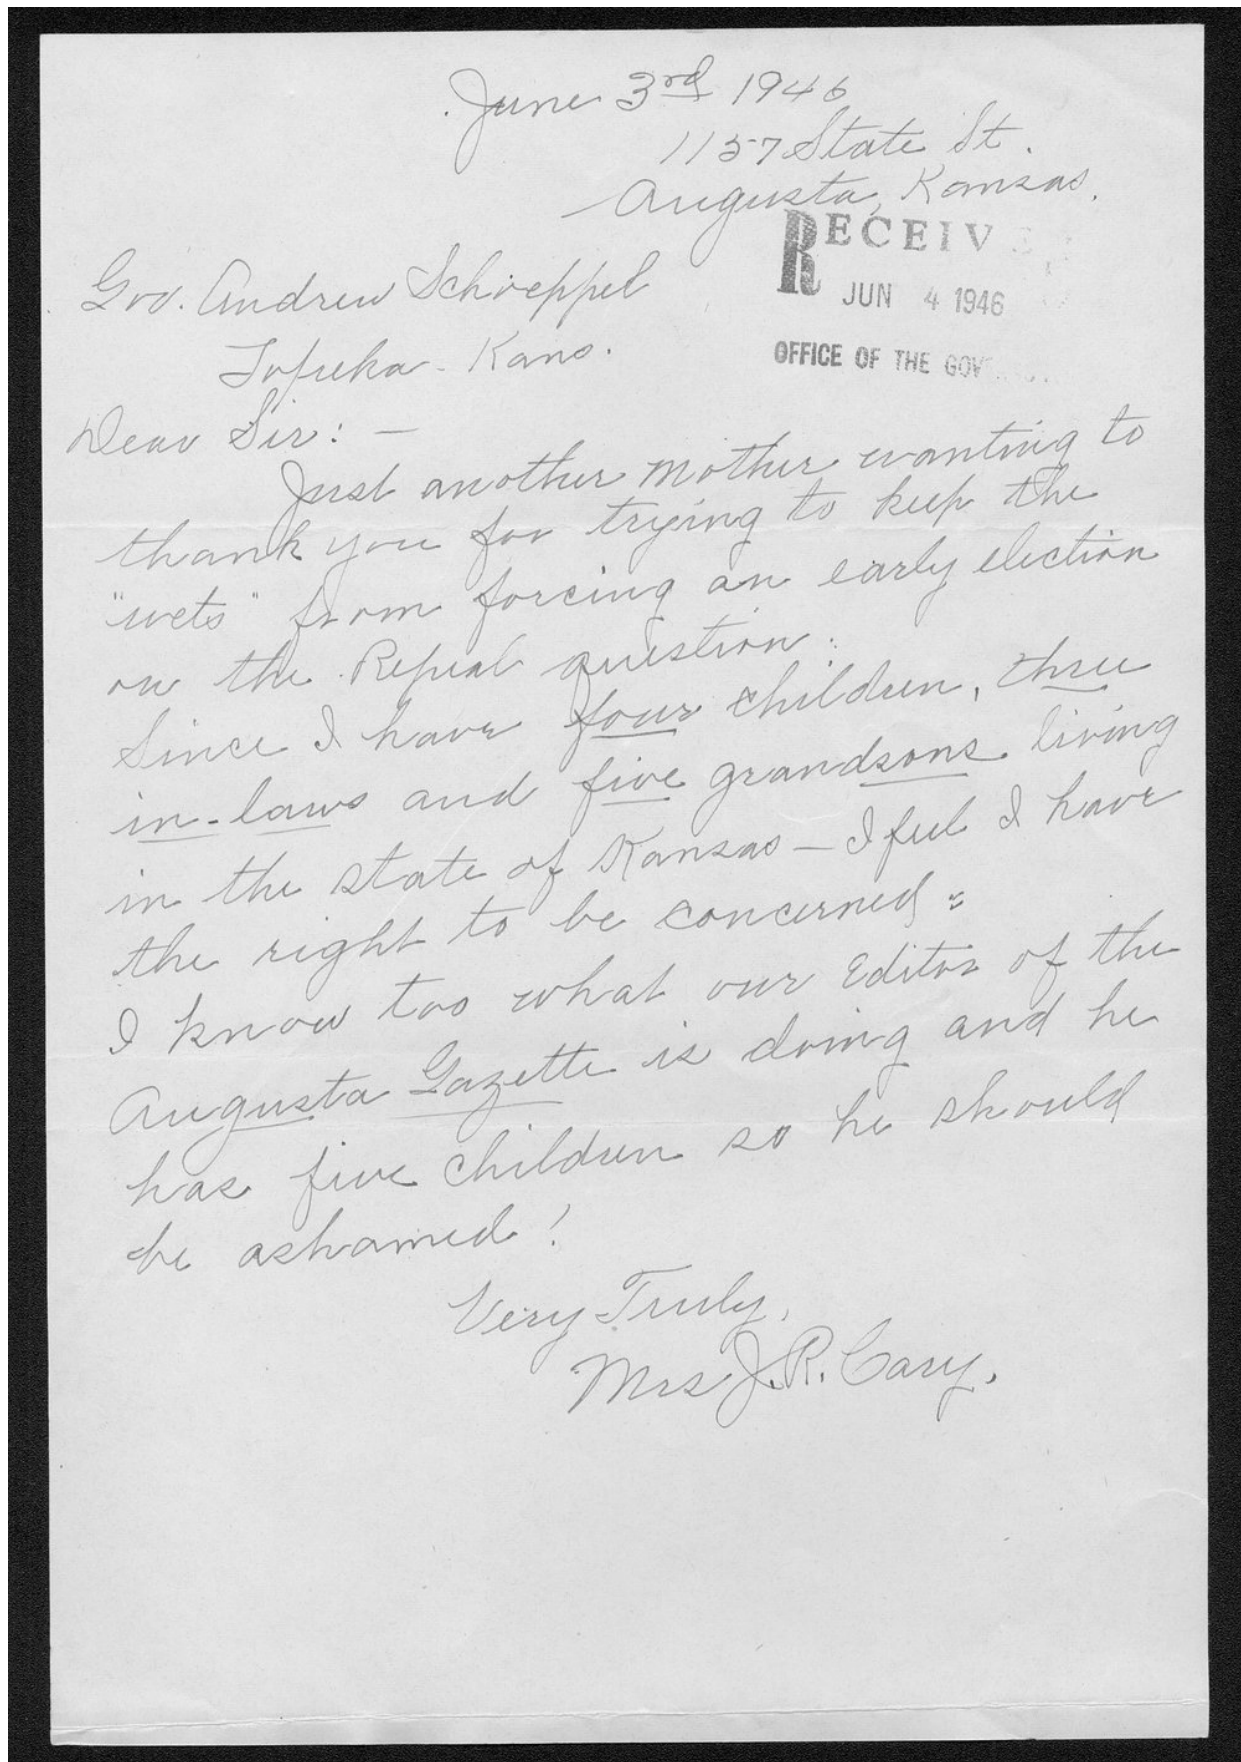 June 3rd 1946
1157 State St.
Augusta, Kansas.
RECEIVE
JUN 4 1946
OFFICE OF THE GOV
Gov. Andrew Schoeppel
Topeka - Kans.
Dear Sir: —
Just another mother wanting to
thank you for trying to keep the
"wets" from forcing an early election
on the Repeal question:
Since I have four children, three
in-laws and five grandsons living
in the state of Kansas — I feel I have
the right to be concerned =
I know too what our Editor of the
Augusta Gazette is doing and he
has five children so he should
be ashamed!
Very Truly,
Mrs J. R. Cary.